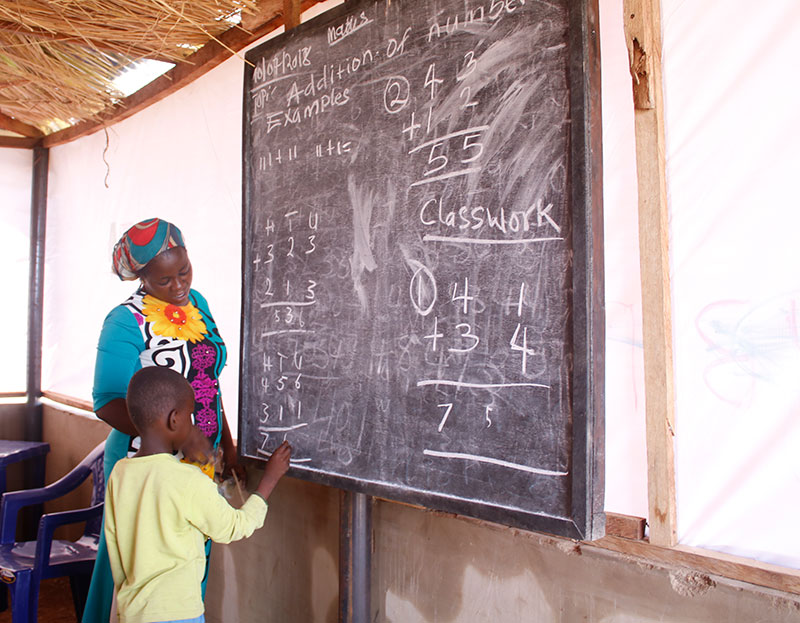 10/07/2018 Maths
Topic Addition of number
Examples
111+11 11+1=
H T U
+3 2 3
2 1 3
5 3 6
H T U
4 5 6
3 1 1
7
② 4 3
+1 2
5 5
Classwork
① 4 1
+3 4
7 5